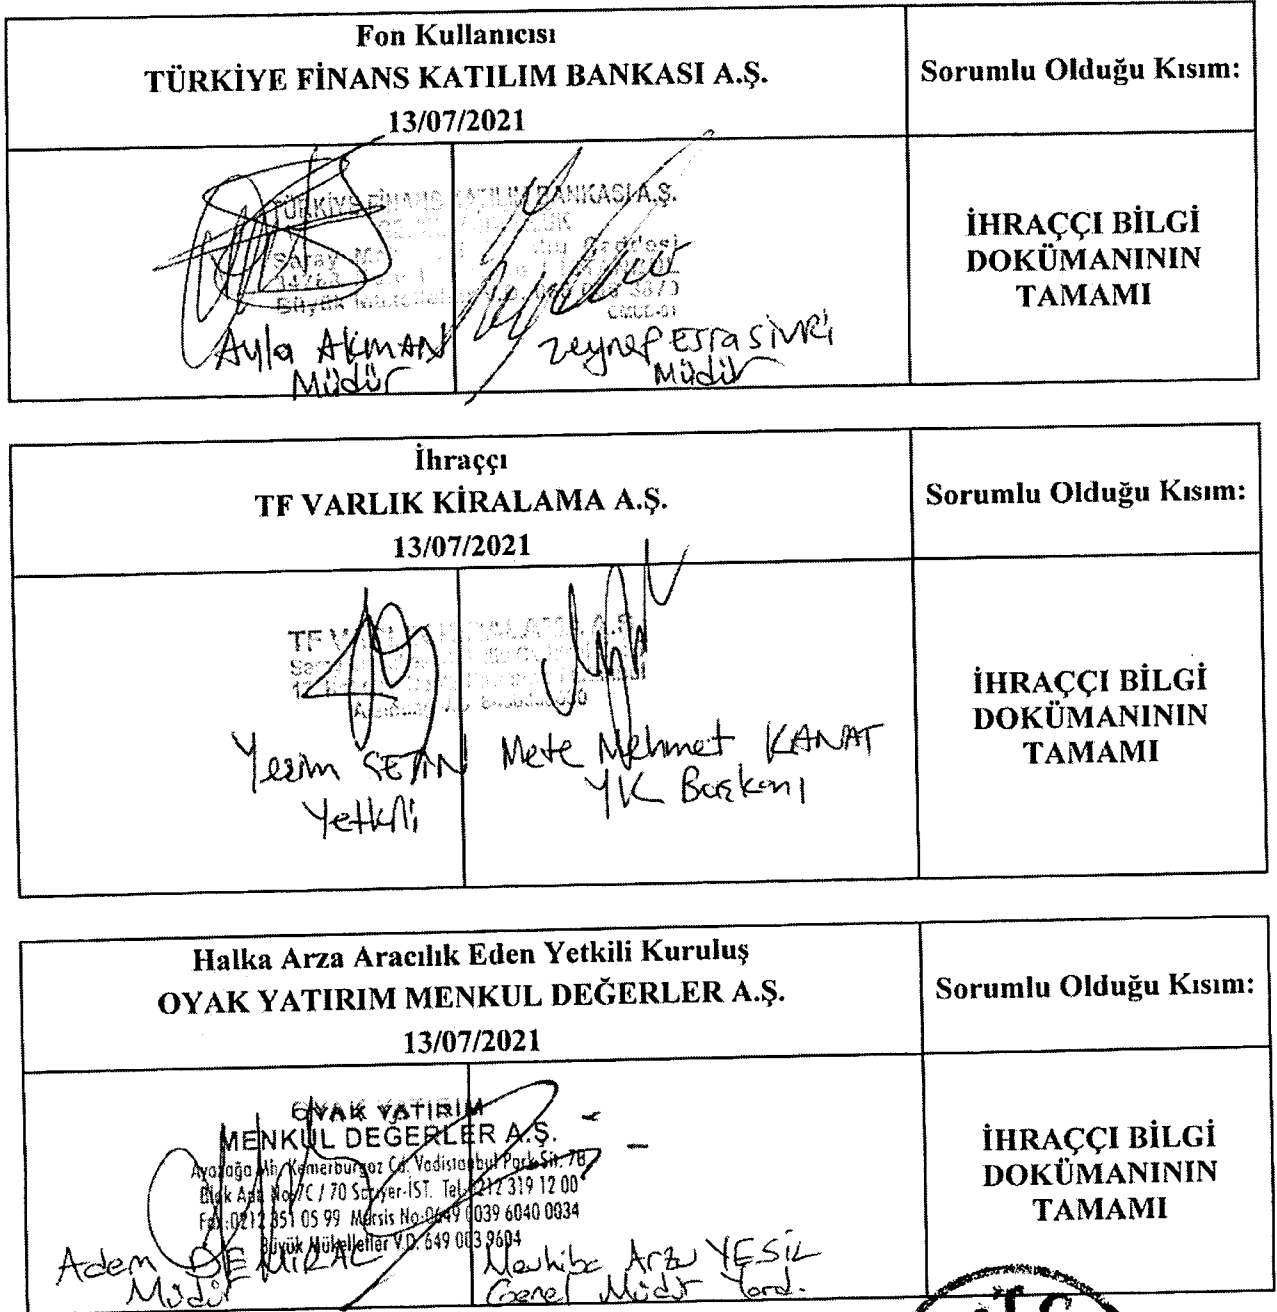 Fon Kullanıcısı
TÜRKİYE FİNANS KATILIM BANKASI A.Ş.
13/07/2021
Sorumlu Olduğu Kısım:
TÜRKİYE FİNANS KATILIM BANKASI A.Ş.
Saray
Büyük
Ayla AKMAN
Müdür
Zeynep Esra SİVRİ
Müdür
İHRAÇÇI BİLGİ
DOKÜMANININ
TAMAMI
İhraççı
TF VARLIK KİRALAMA A.Ş.
13/07/2021
Sorumlu Olduğu Kısım:
TF VARLIK KİRALAMA A.Ş.
Yetkili
Mete Mehmet KANAT
YK Başkanı
İHRAÇÇI BİLGİ
DOKÜMANININ
TAMAMI
Halka Arza Aracılık Eden Yetkili Kuruluş
OYAK YATIRIM MENKUL DEĞERLER A.Ş.
13/07/2021
Sorumlu Olduğu Kısım:
OYAK YATIRIM
MENKUL DEĞERLER A.Ş.
Ayazağa Mh. Kemerburgaz Cd. Vadistanbul Park Sit. 7B
Blok Apt. No:7C / 70 Sarıyer-İST. Tel: 0212 319 12 00
Fax:0212 351 05 99 Mersis No:0649 0039 6040 0034
Büyük Mükellefler V.D. 649 003 9604
Adem DEMİRAL
Müdür
Mevhibe Arzu YEŞİL
Genel Müdür Yard.
İHRAÇÇI BİLGİ
DOKÜMANININ
TAMAMI
T.C.